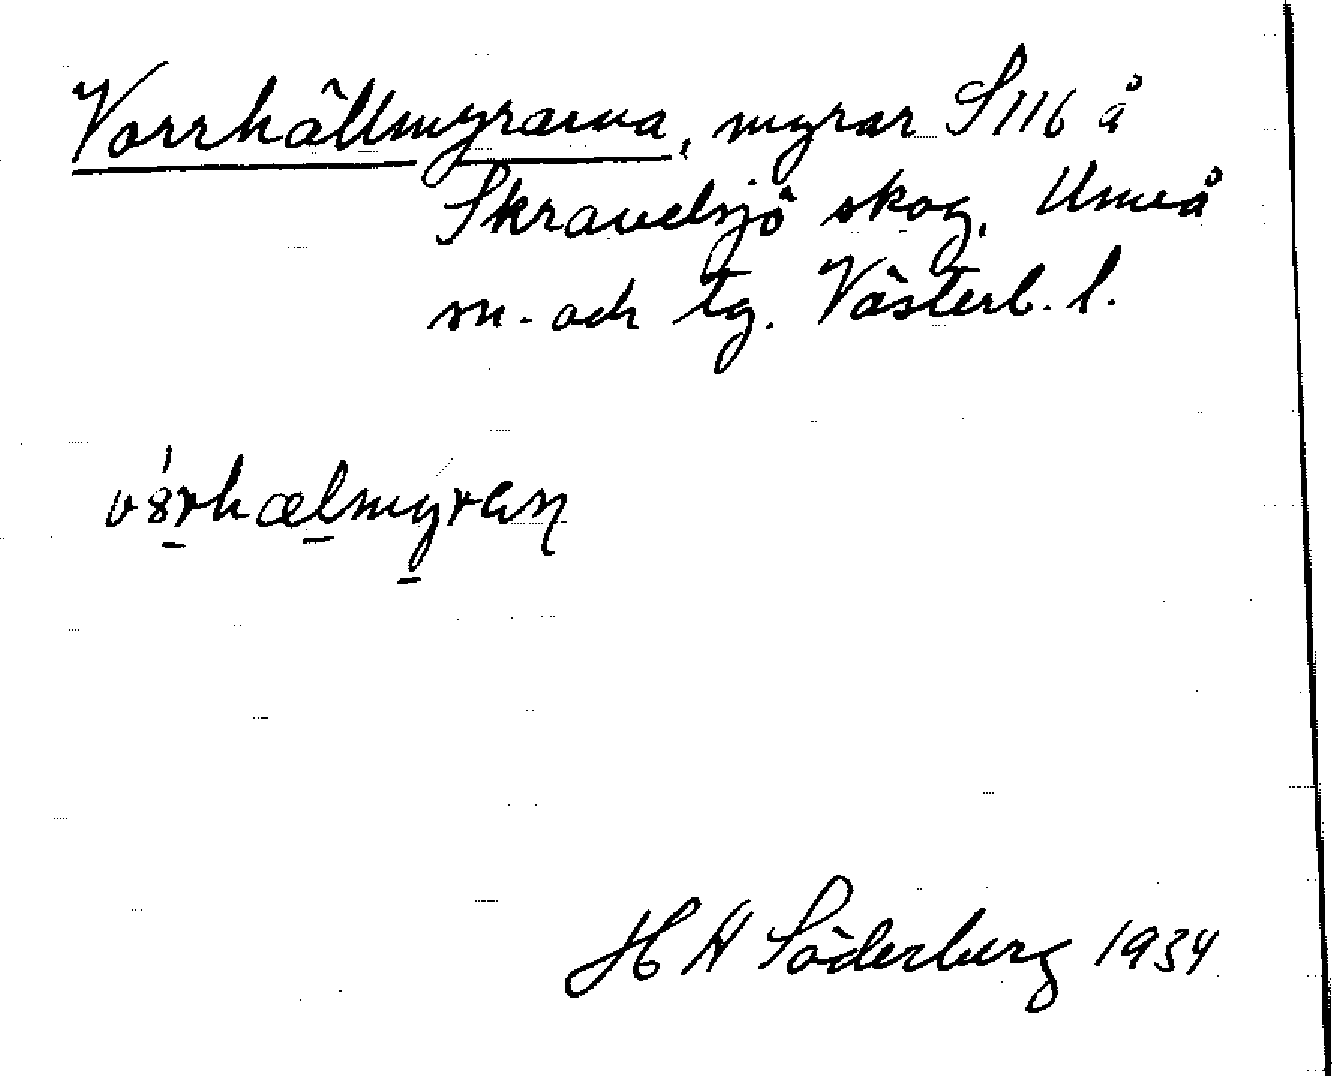 Vorrhällmyrarna, myrar S 116 å
Skravelsjö skog, Umeå
sn. och tg. Västerb. l.
vȣrhælmyran
H A Söderberg 1934